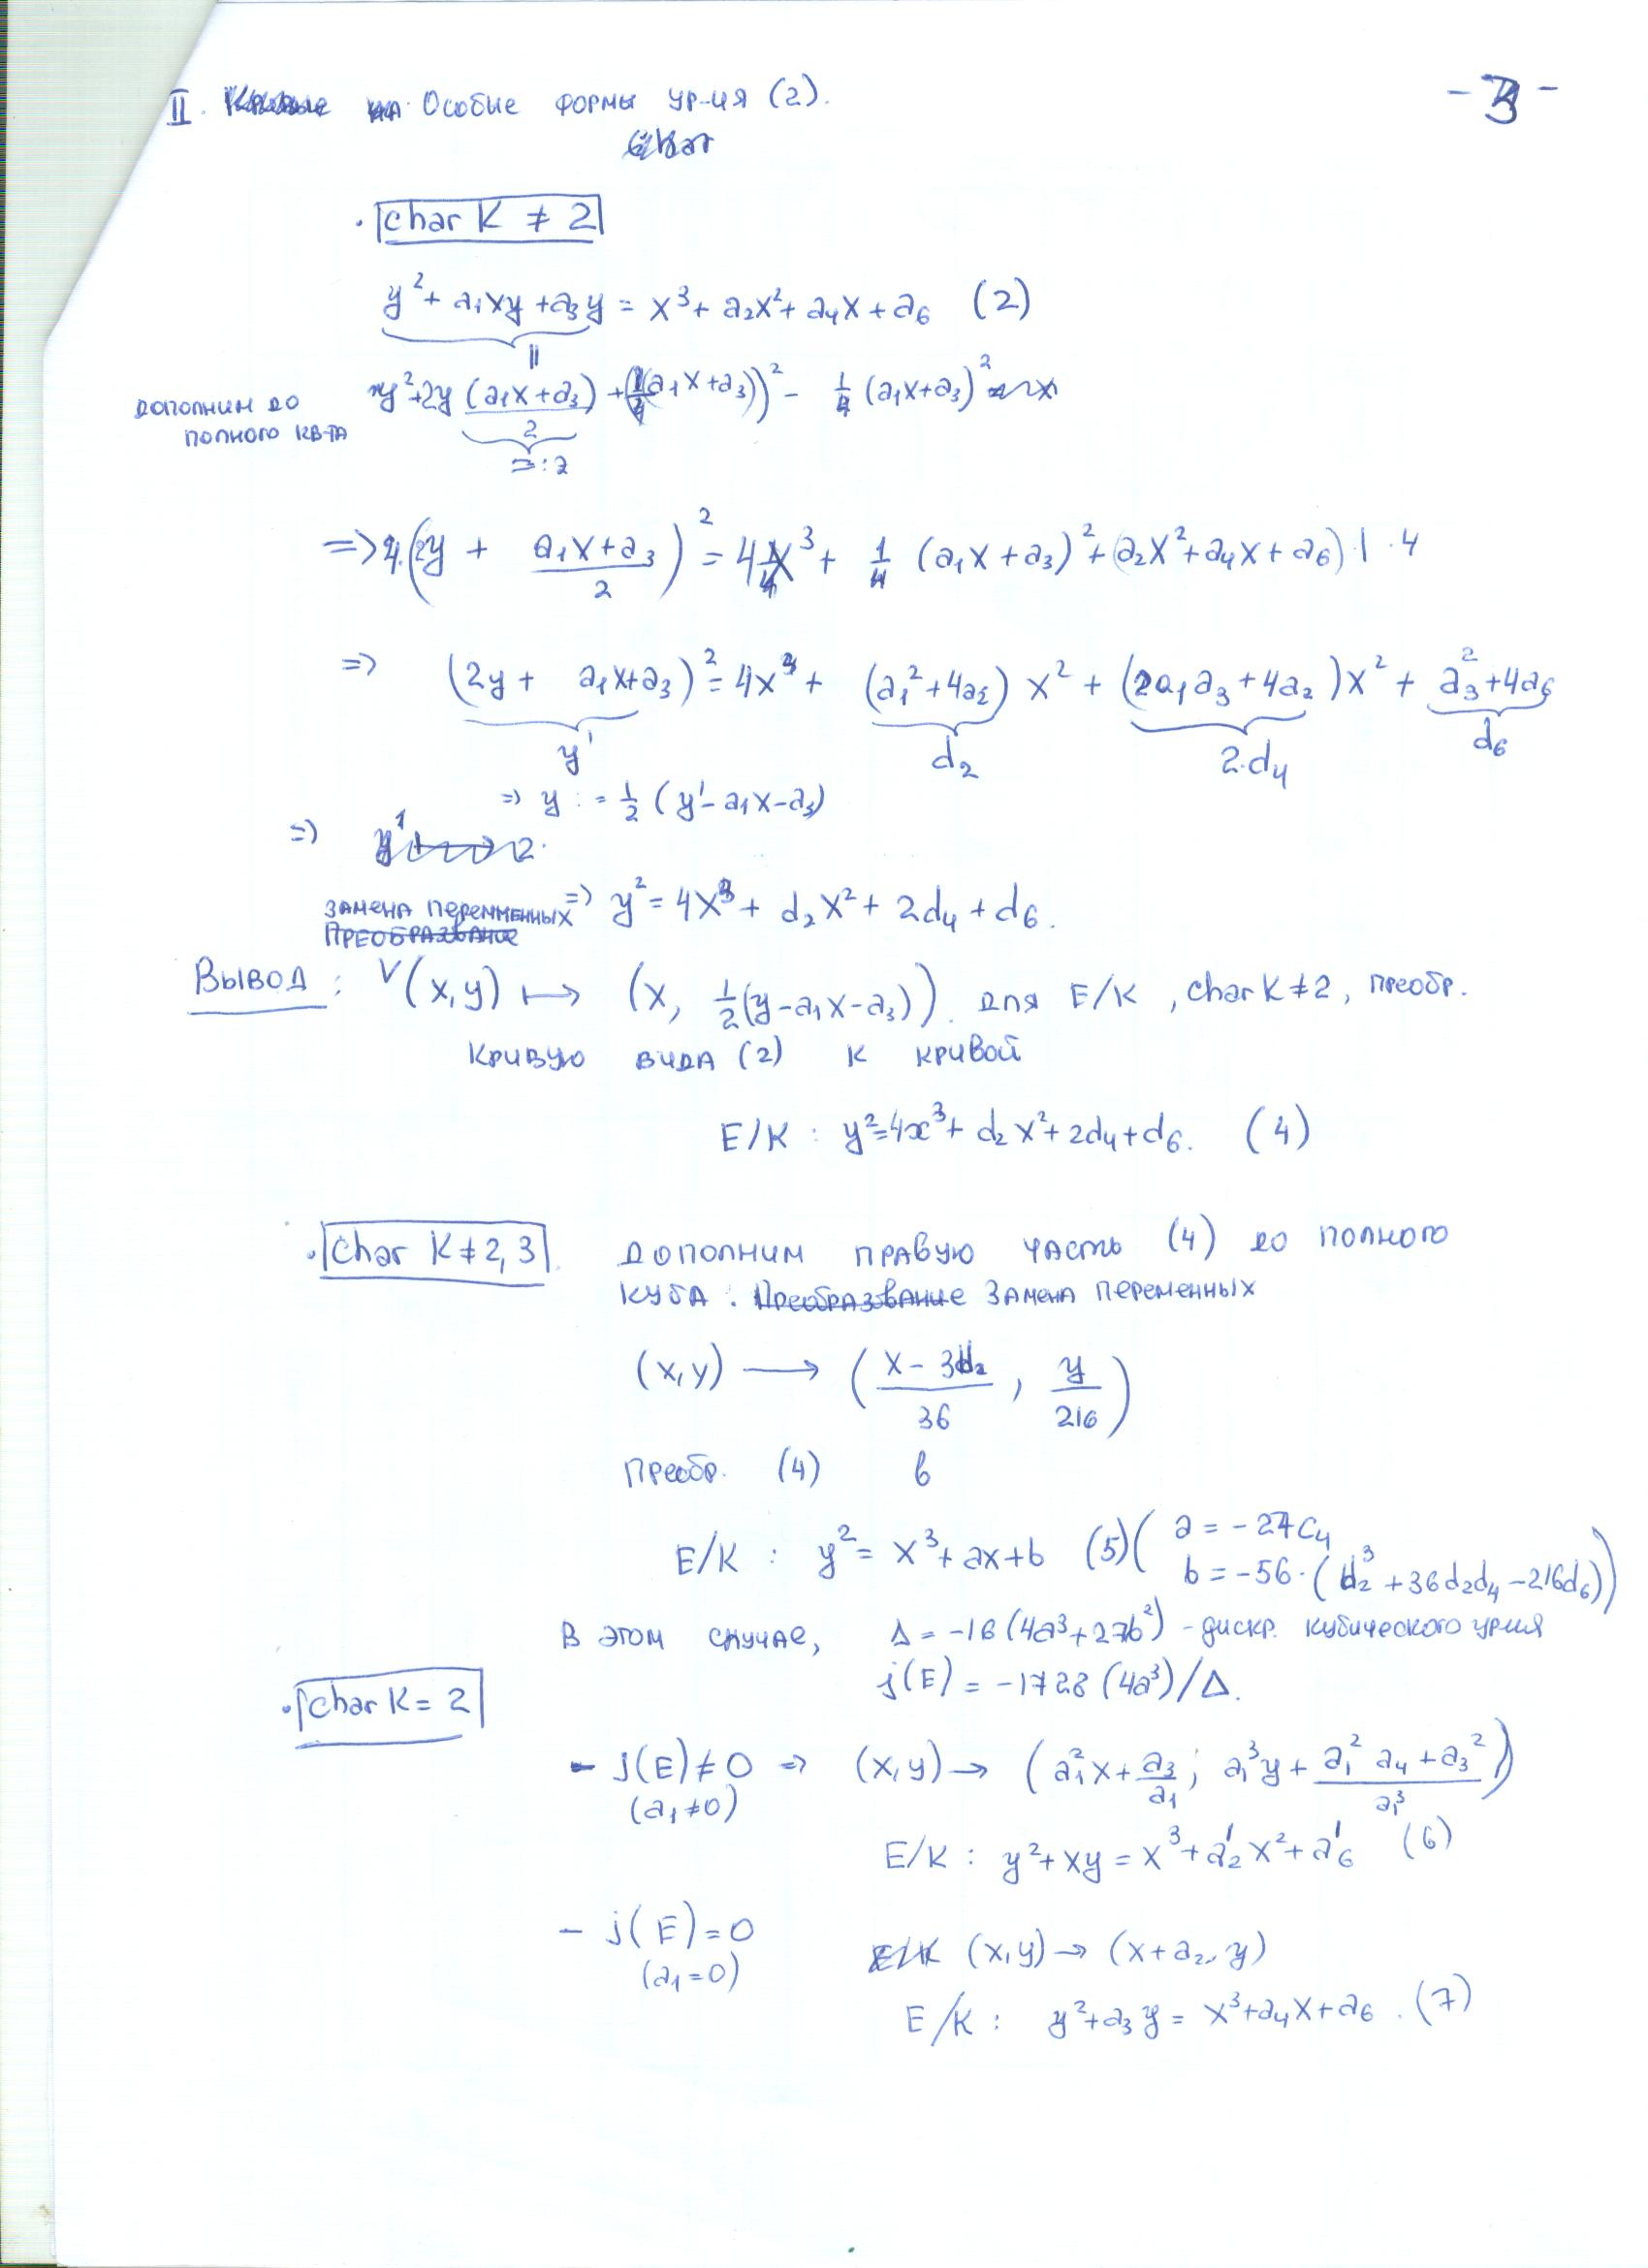 - 3 -
II. Особые формы ур-ия (2).
· char K ≠ 2
y² + a₁xy + a₃y = x³ + a₂x² + a₄x + a₆ (2)
||
дополним до полного кв-та
y² + 2y (a₁x + a₃)/2 + (½(a₁x + a₃))² - ¼ (a₁x + a₃)²
=: z
=> 4·(y + (a₁x + a₃)/2)² = 4x³ + ¼ (a₁x + a₃)² + a₂x² + a₄x + a₆) | · 4
=> (2y + a₁x + a₃)² = 4x³ + (a₁² + 4a₂) x² + (2a₁a₃ + 4a₂)x² + a₃² + 4a₆
y' d₂ 2·d₄ d₆
=> y := ½ (y' - a₁x - a₃)
=>
=> y² = 4x³ + d₂x² + 2d₄ + d₆.
замена переменных
Преобразвание
Вывод: (x, y) ↦ (x, ½(y - a₁x - a₃)). для E/K, char K ≠ 2, преобр.
кривую вида (2) к кривой
E/K : y² = 4x³ + d₂x² + 2d₄ + d₆. (4)
· char K ≠ 2, 3. Дополним правую часть (4) до полного
куба. Преобразвание Замена переменных
(x, y) → ((x - 3d₂)/36, y/216)
Преобр. (4) в
E/K : y² = x³ + ax + b (5) ( a = -27c₄
b = -56·(d₂³ + 36d₂d₄ - 216d₆))
В этом случае, Δ = -16(4a³ + 27b²) - дискр. кубического ур-ия
j(E) = -1728 (4a³)/Δ.
· char K = 2
- j(E) ≠ 0 => (x, y) → (a₁²x + a₃/a₁; a₁³y + (a₁²a₄ + a₃²)/a₁³)
(a₁ ≠ 0)
E/K : y² + xy = x³ + a₂'x² + a₆' (6)
- j(E) = 0 E/K (x, y) → (x + a₂, y)
(a₁ = 0)
E/K : y² + a₃y = x³ + a₄x + a₆. (7)